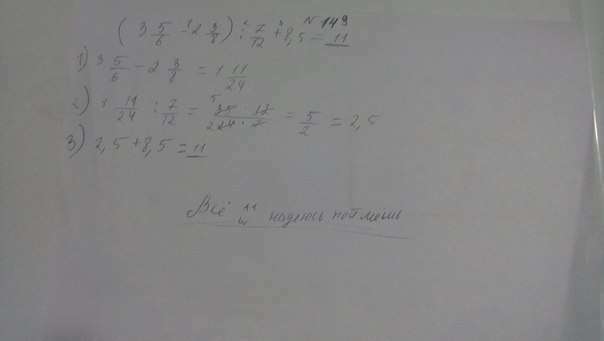 N 149
(3 5/6 - 2 3/8) : 7/12 + 8,5 = 11
1) 3 5/6 - 2 3/8 = 1 11/24
2) 1 11/24 : 7/12 = 35 · 12 / 24 · 7 = 5/2 = 2,5
3) 2,5 + 8,5 = 11
Всё надеюсь поймёшь